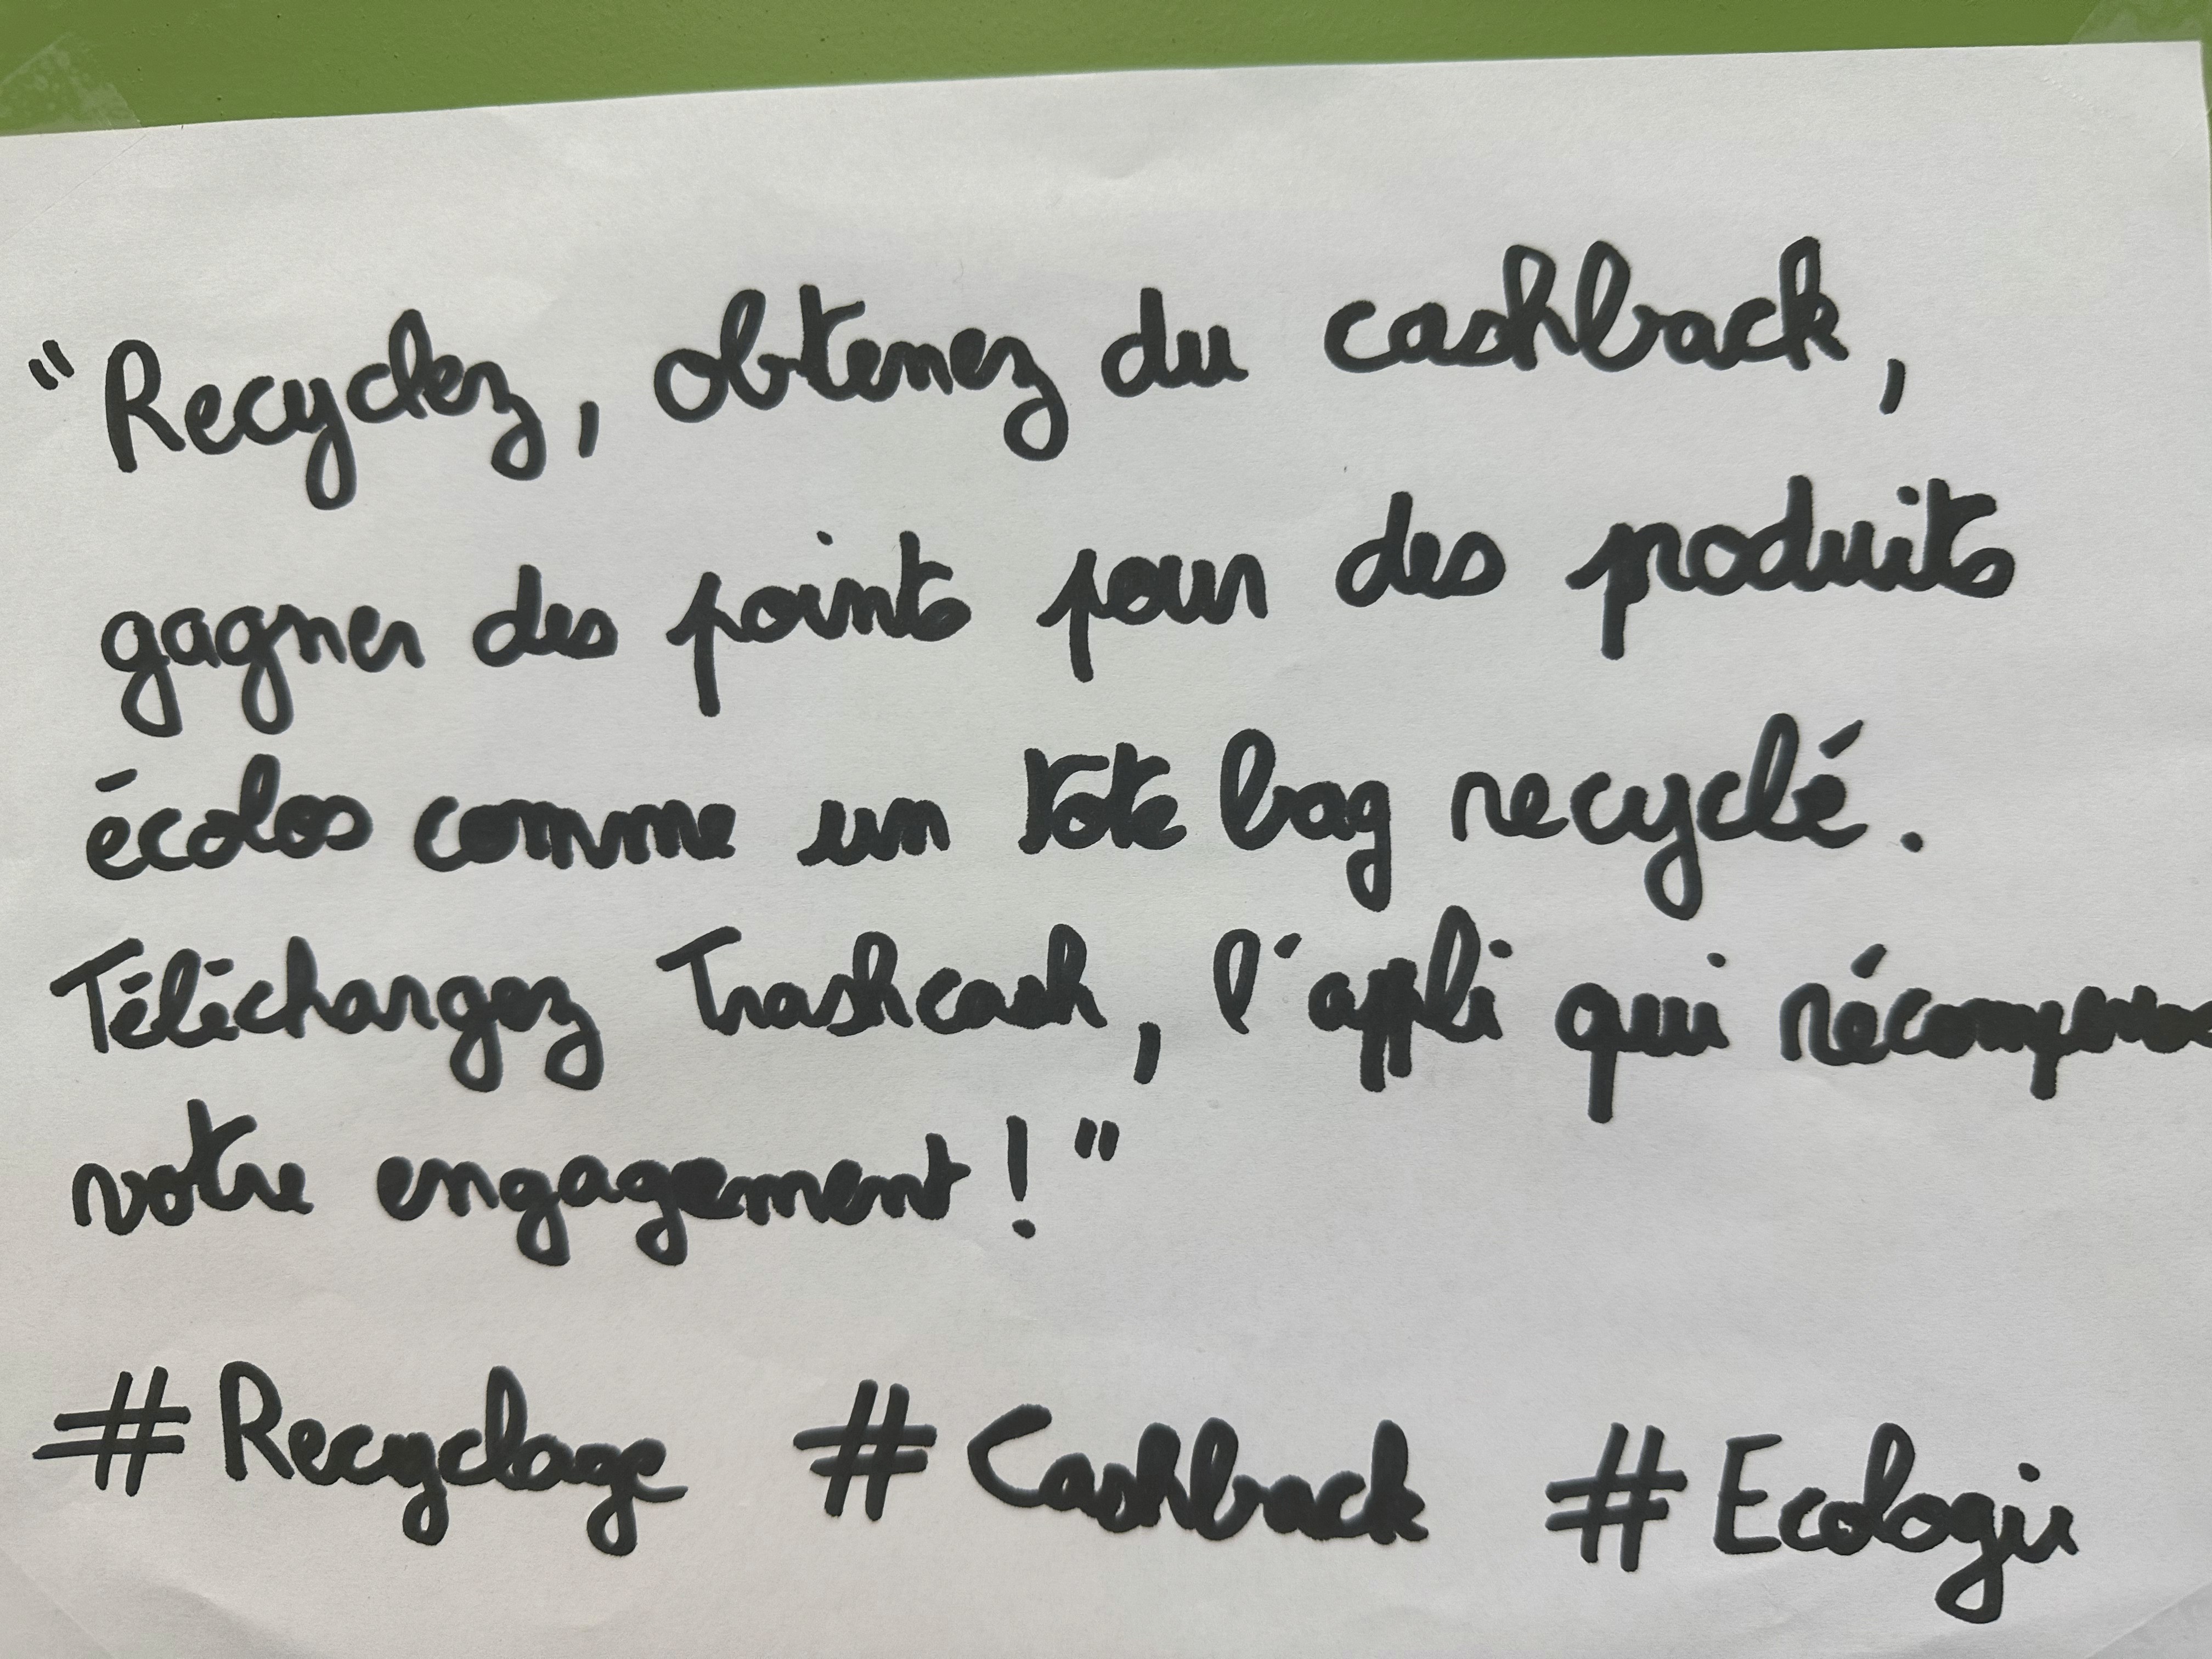 "Recyclez, obtenez du cashback,
gagner des points pour des produits
écolos comme un tote bag recyclé.
Téléchargez Trashcash, l'appli qui récompense
votre engagement !"
#Recyclage #Cashback #Ecologie